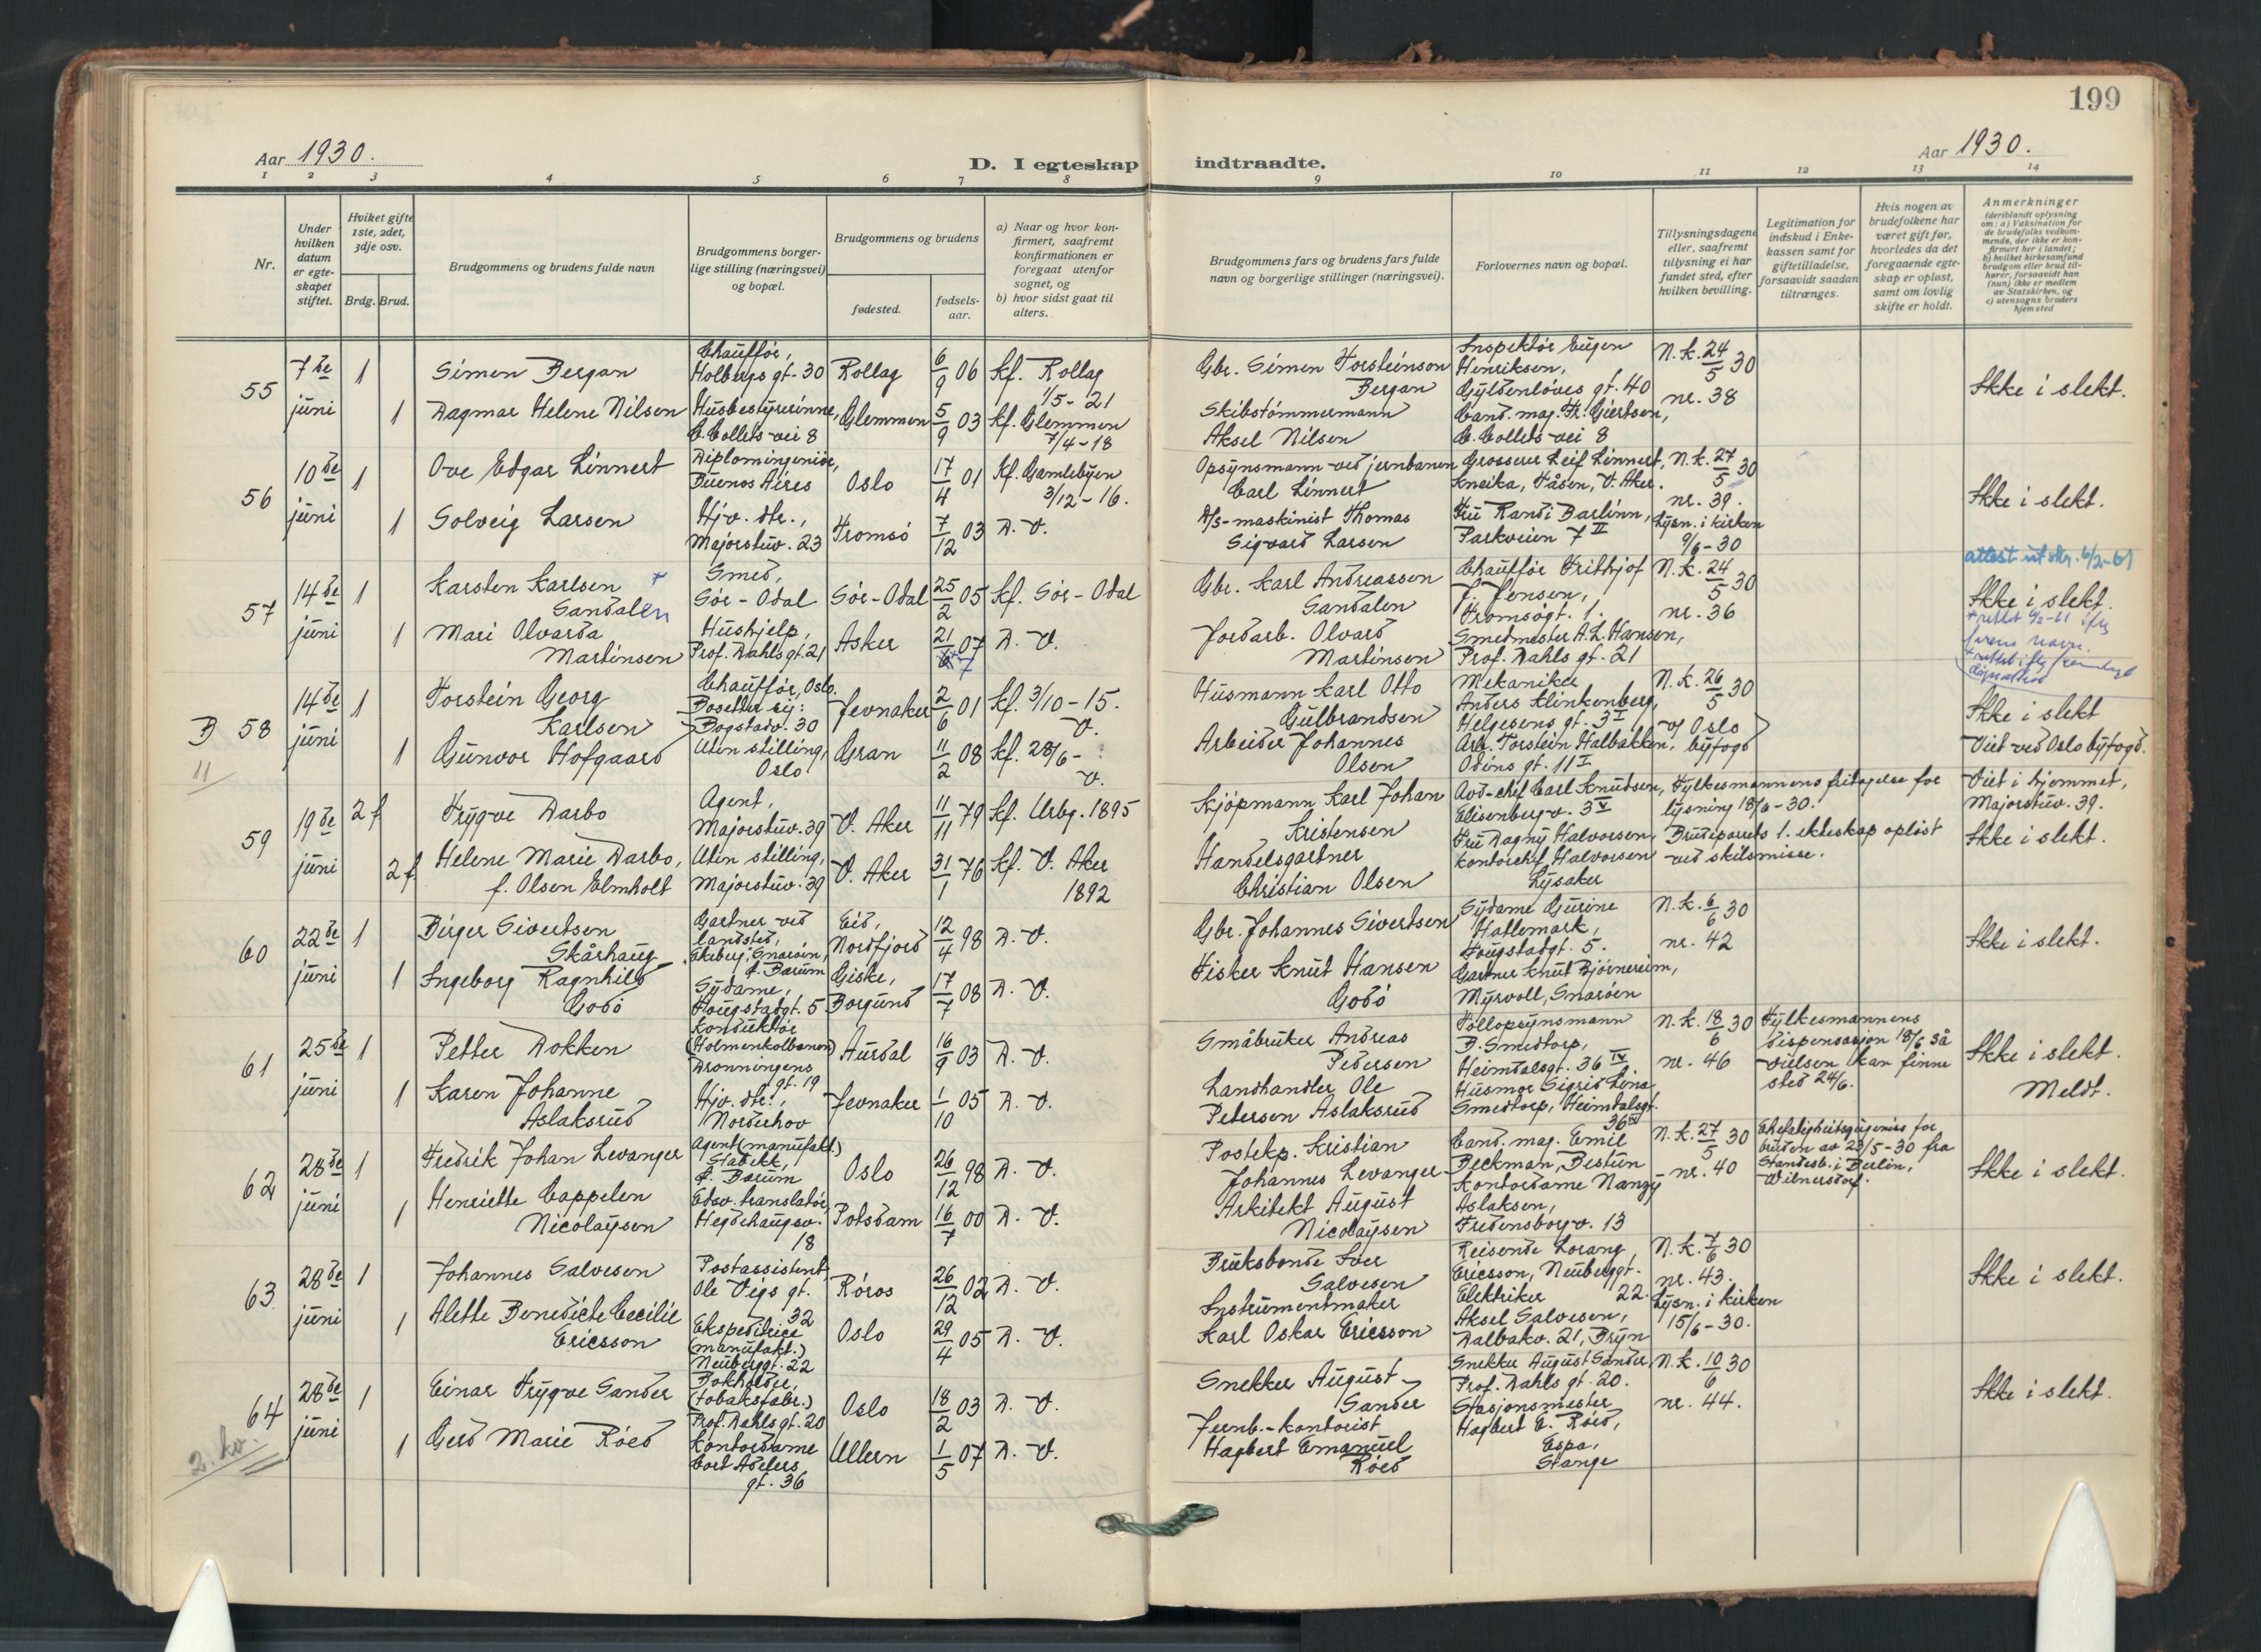 199
Aar 1930.
D. I egteskap indtraadte.
Aar 1930.
1 2 3 4 5 6 7 8 9 10 11 12 13 14
Nr.
Under
hvilken
datum
er egte-
skapet
stiftet.
Hviket gifte
1ste, 2det,
3dje osv.
Brdg. Brud.
Brudgommens og brudens fulde navn
Brudgommens borger-
lige stilling (næringsvei)
og bopæl.
Brudgommens og brudens
fødested.
fødsels-
aar.
a) Naar og hvor kon-
firmert, saafremt
konfirmationen er
foregaat utenfor
sognet, og
b) hvor sidst gaat til
alters.
Brudgommens fars og brudens fars fulde
navn og borgerlige stillinger (næringsvei).
Forlovernes navn og bopæl.
Tillysningsdagene
eller, saafremt
tillysning ei har
fundet sted, efter
hvilken bevilling.
Legitimation for
indskud i Enke-
kassen samt for
giftetilladelse,
forsaavidt saadan
tiltrænges.
Hvis nogen av
brudefolkene har
været gift før,
hvorledes da det
foregaaende egte-
skap er opløst,
samt om lovlig
skifte er holdt.
Anmerkninger
(deriblandt oplysning
om: a) Vaksination for
de brudefolks vedkom-
mende, der ikke er kon-
firmert her i landet;
b) hvilket kirkesamfund
brudgom eller brud til-
hører, forsaavidt han
(hun) ikke er medlem
av Statskirken, og
c) utensogns bruders
hjemsted
55
7de
juni
1
Simen Bergan
Chauffør,
Holbergs gt. 30
Rollag
6/9 06
Kf. Rollag
1/5 - 21
Gbr. Simen Torsteinson
Bergan
Inspektør Eugen
Henriksen,
Gyldenløves gt. 40
N.k. 24/5 30
nr. 38
Ikke i slekt.
1
Dagmar Helene Nilsen
Husbestyrerinne,
C. Collets vei 8
Glemmen
5/9 03
Kf. Glemmen
7/4 - 18
Skibstømmermann
Aksel Nilsen
Cand. mag. Fr. Giertsen,
C. Collets vei 8
56
10de
juni
1
Ove Edgar Linnert
Diplomingeniør,
Buenos Aires
Oslo
17/4 01
Kf. Gamlebyen
3/12 - 16.
Opsynsmann ved jernbanen
Carl Linnert
Grosserer Leif Linnert,
Kneika, Tåsen, V. Aker.
N.k. 27/5 30
nr. 39.
Lysn. i kirken
9/6 - 30
Ikke i slekt.
1
Solveig Larsen
Hjv. dtr.,
Majorstuv. 23
Tromsø
7/12 03
D. V.
A/s-maskinist Thomas
Sigvard Larsen
Fru Randi Barlinn,
Parkveien 7 II
57
14de
juni
1
Karsten Karlsen +
Sandalen
Smed,
Sør-Odal
Sør-Odal
25/2 05
Kf. Sør-Odal
Gbr. Karl Andreassen
Sandalen
Chauffør Frithjof
F. Jensen,
Tromsøgt. 1.
N.k. 24/5 30
nr. 36
attest utskr. 6/2-61
Ikke i slekt.
+ rettet 6/2-61 iflg
farens navn.
1
Mari Olvarda
Martinsen
Hushjelp,
Prof. Dahls gt. 21
Asker
21/7 07
D. V.
Jordarb. Olvard
Martinsen
Smedmester A.L. Hansen,
Prof. Dahls gt. 21
B 58
11
14de
juni
1
Torstein Georg
Karlsen
Chauffør, Oslo.
Bosetter sig:
Bogstadv. 30
Jevnaker
2/6 01
Kf. 3/10 - 15.
V.
Husmann Karl Otto
Gulbrandsen
Mekaniker
Anders Klinkenberg,
Helgesens gt. 3 I
N.k. 26/5 30
v/ Oslo
byfogd
Ikke i slekt
Viet ved Oslo byfogd.
1
Gunvor Hofgaard
Uten stilling,
Oslo
Gran
11/2 08
Kf. 28/6 -
V.
Arbeider Johannes
Olsen
Arb. Torstein Halbakken,
Odins gt. 11 I
59
19de
juni
2 f
Trygve Darbo
Agent,
Majorstuv. 39
V. Aker
11/11 79
Kf. Urbg. 1895
Kjøpmann Karl Johan
Kristensen
Avd-chef Carl Knudsen,
Elisenbergv. 3 V
Fylkesmannens fritagelse for
lysning 18/6 - 30.
Viet i hjemmet,
Majorstuv. 39.
Ikke i slekt.
2 f
Helene Marie Darbo,
f. Olsen Elmholt
Uten stilling,
Majorstuv. 39
V. Aker
31/1 76
Kf. V. Aker
1892
Handelsgartner
Christian Olsen
Fru Dagny Halvorsen,
Kontorchef Halvorsen
Lysaker
Brudeparets 1. ekteskap opløst
ved skilsmisse.
60
22de
juni
1
Birger Sivertsen
Skårhaug
Gartner ved
landsted,
Ekeberg, Snarøen,
p. Bærum
Eid,
Nordfjord
12/4 98
D. V.
Gbr. Johannes Sivertsen
Sydame Gurine
Hallemark,
Hougstadgt. 5.
N.k. 6/6 30
nr. 42
Ikke i slekt.
1
Ingeborg Ragnhild
Godø
Sydame,
Hougstadgt. 5
Giske,
Borgund
17/7 08
D. V.
Fisker Knut Hansen
Godø
Gartner Knut Bjørnereim,
Myrvoll, Snarøen
61
25de
juni
1
Petter Dokken
Konduktør
(Holmenkolbanen)
Dronningens
gt. 19
Aurdal
16/9 03
D. V.
Småbruker Andreas
Pedersen
Tollopsynsmann
B. Smedtorp,
Heimdalsgt. 36 IV
N.k. 18/6 30
nr. 46
Fylkesmannens
dispensasjon 18/6 så
vielsen kan finne
sted 24/6.
Ikke i slekt.
Meldt.
1
Karen Johanne
Aslaksrud
Hjv. dtr.,
Norderhov
Jevnaker
1/10 05
D. V.
Landhandler Ole
Petersen Aslaksrud
Husmor Sigrid Lona
Smedtorp, Heimdalsgt.
36 IV
62
28de
juni
1
Fredrik Johan Levanger
Agent (manufakt.)
Stabekk,
p. Bærum
Oslo
26/12 98
D. V.
Postekp. Kristian
Johannes Levanger
Cand. mag. Emil
Beckman, Bestun
N.k. 27/5 30
nr. 40
Ekteførlighetsgivenis for
bruden av 23/5 - 30 fra
Standesb. i Berlin,
Wilmersdorf.
Ikke i slekt.
1
Henriette Cappelen
Nicolaysen
Edsv. translatør,
Hegdehaugsv.
18
Potsdam
16/7 00
D. V.
Arkitekt August
Nicolaysen
Kontordame Nanzy
Aslaksen,
Fredensborgv. 13
63
28de
juni
1
Johannes Salvesen
Postassistent
Ole Vigs gt.
32
Røros
26/12 02
D. V.
Bruksbonde Iver
Salvesen
Reisende Lorang
Ericsson, Neuberggt.
22.
N.k. 7/6 30
nr. 43.
Lysn. i kirken
15/6 - 30.
Ikke i slekt.
1
Alette Benedicte Cecilie
Ericsson
Ekspeditrice
(manufakt.)
Neuberggt. 22
Oslo
29/4 05
D. V.
Instrumentmaker
Karl Oskar Ericsson
Elektriker
Aksel Salvesen,
Dalbakv. 21, Bryn
64
2. kv.
28de
juni
1
Einar Trygve Sander
Bokholder,
(tobaksfabr.)
Prof. Dahls gt. 20
Oslo
18/2 03
D. V.
Snekker August
Sander
Snekker August Sander,
Prof. Dahls gt. 20.
N.k. 10/6 30
nr. 44.
Ikke i slekt.
1
Gerd Marie Röed
Kontordame
Cort Adelers
gt. 36
Ullern
1/5 07
D. V.
Jernb.-kontorist
Hagbert Emanuel
Röed
Stasjonsmester
Hagbert E. Röed,
Espa,
Stange